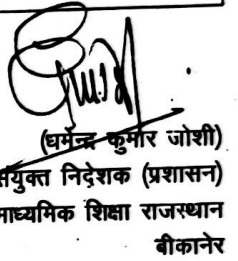 (धर्मेन्द्र कुमार जोशी)
संयुक्त निदेशक (प्रशासन)
माध्यमिक शिक्षा राजस्थान
बीकानेर